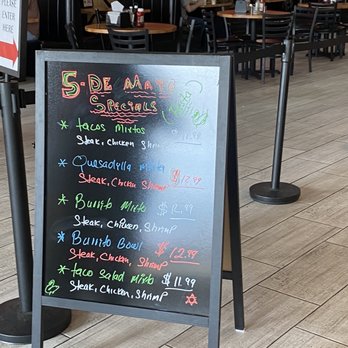 PLEASE
ENTER
HERE
5-DE MAYO
Specials
* tacos Mixtos $11.99
Steak, Chicken Shrimp
* Quesadilla Mixta
Steak, Chicken Shrimp $12.99
* Burrito Mixto $12.99
Steak, Chicken, Shrimp
* Burrito Bowl $12.99
Steak, Chicken, Shrimp
* taco Salad Mixto $11.99
Steak, Chicken, Shrimp